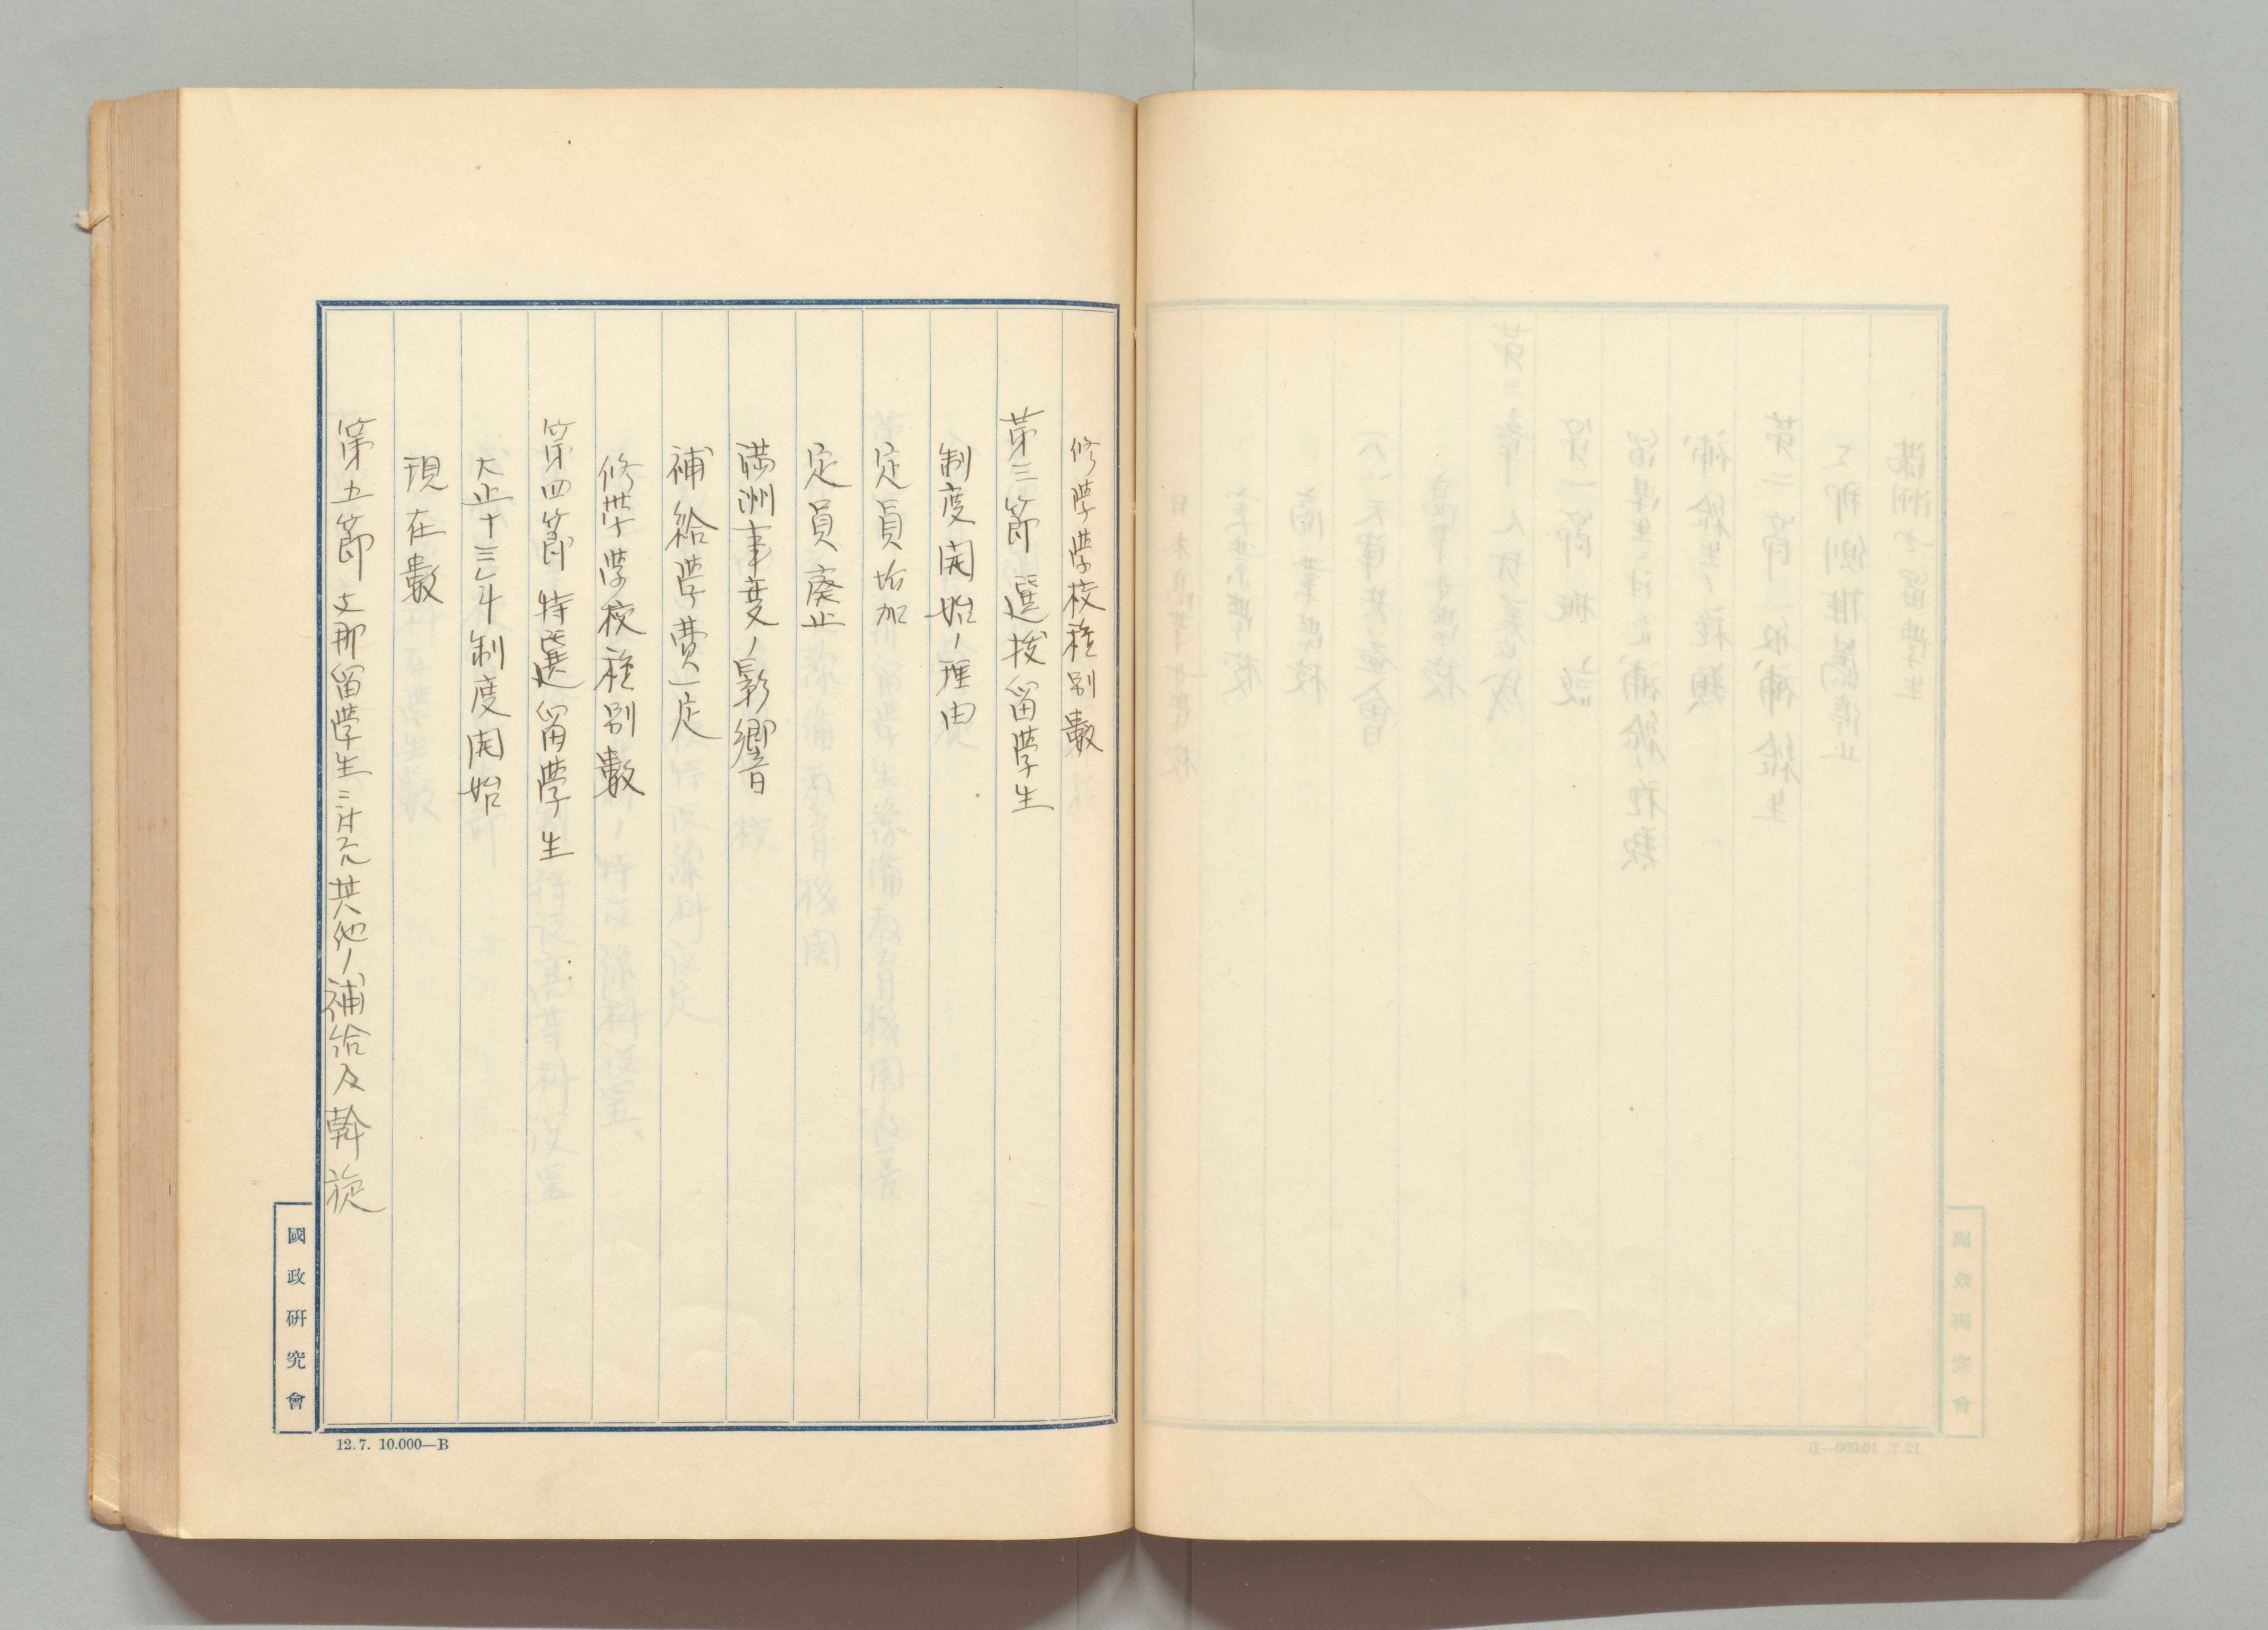 修学学校種別数
第三節 選抜留学生
制度開始ノ理由
定員増加
定員廃止
満洲事変ノ影響
補給学費一定
修学学校種別数
第四節 特選留学生
大正十三年制度開始
現在数
第五節 支那留学生ニ対スル其他ノ補給及斡旋
國政研究會
12.7. 10.000—B